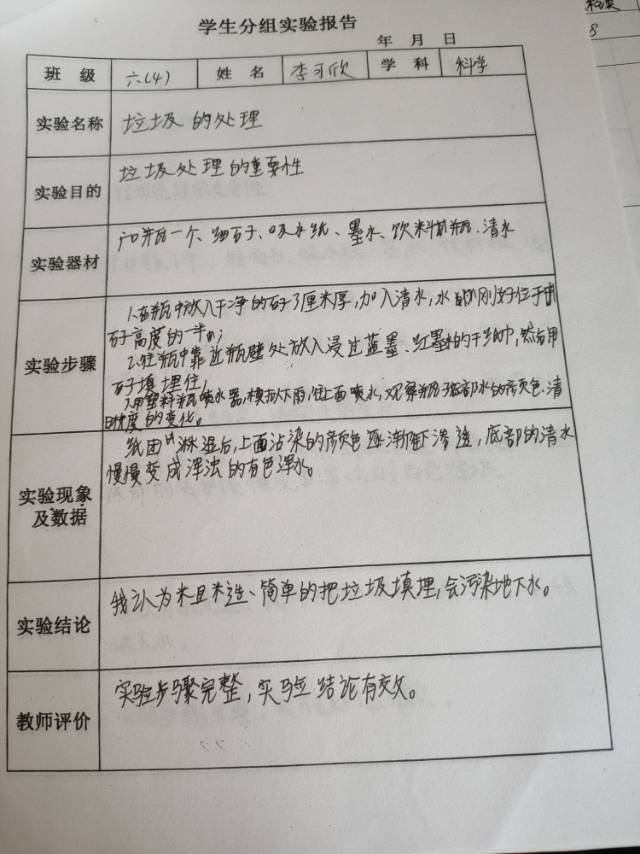 学生分组实验报告
年 月 日
班 级 六(4) 姓 名 李可欣 学 科 科学
实验名称 垃圾的处理
实验目的 垃圾处理的重要性
实验器材 一个、细石子、吸水纸、墨水、饮料瓶、清水
实验步骤
1.在瓶中放入干净的石子3厘米厚,加入清水,水的刚好位于
石子高度的一半;
2.往瓶中靠近瓶壁处放入浸过蓝墨、红墨的干纸巾,然后用
石子填埋住,
3.用塑料瓶喷水器,模拟下雨,往上面喷水,观察瓶子底部水的颜色、清
度的变化。
实验现象及数据
纸团淋湿后,上面沾染的颜色逐渐向下渗透,底部的清水
慢慢变成浑浊的有色浑水。
实验结论 我认为 简单的把垃圾填埋,会污染地下水。
教师评价 实验步骤完整,实验结论有效。
8